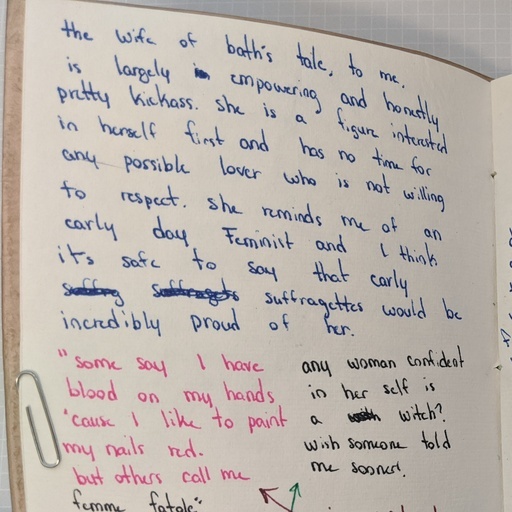 the wife of bath's tale, to me,
is largely empowering and honestly
pretty kickass. she is a figure interested
in herself first and has no time for
any possible lover who is not willing
to respect. she reminds me of an
early day Feminist and I think
it's safe to say that early
suffragettes would be
incredibly proud of her.
"some say I have
blood on my hands
'cause I like to paint
my nails red.
but others call me
femme fatale"
any woman confident
in her self is
a witch?
wish someone told
me sooner!